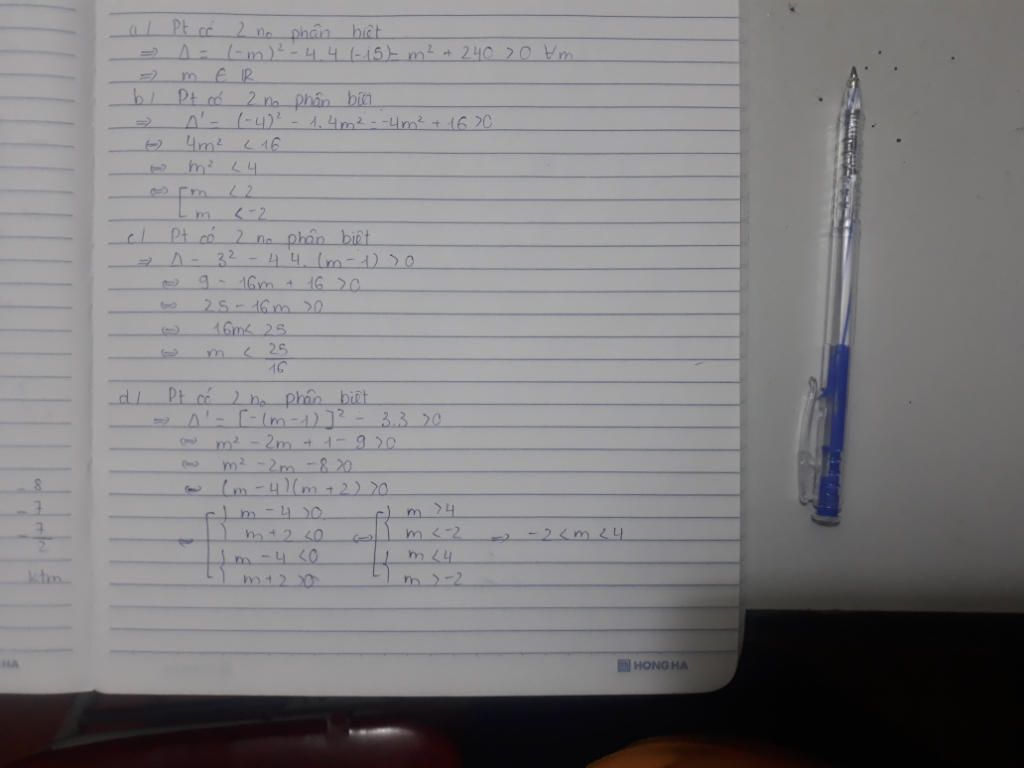 a/ Pt có 2 no phân biệt
=> Δ = (-m)² - 4.4(-15) = m² + 240 > 0 ∀m
=> m ∈ ℝ
b/ Pt có 2 no phân biệt
=> Δ' = (-4)² - 1.4m² = -4m² + 16 > 0
⇔ 4m² < 16
⇔ m² < 4
⇔ [ m < 2
m < -2
c/ Pt có 2 no phân biệt
=> Δ = 3² - 4.4.(m-1) > 0
⇔ 9 - 16m + 16 > 0
⇔ 25 - 16m > 0
⇔ 16m < 25
⇔ m < 25/16
d/ Pt có 2 no phân biệt
=> Δ' = [-(m-1)]² - 3.3 > 0
⇔ m² - 2m + 1 - 9 > 0
⇔ m² - 2m - 8 > 0
⇔ (m-4)(m+2) > 0
⇔ [ { m - 4 > 0 ⇔ [ { m > 4
m + 2 < 0 m < -2 => -2 < m < 4
{ m - 4 < 0 { m < 4
m + 2 > 0 m > -2
- 8
- 7
- 7/2
ktm
HA
HONG HA